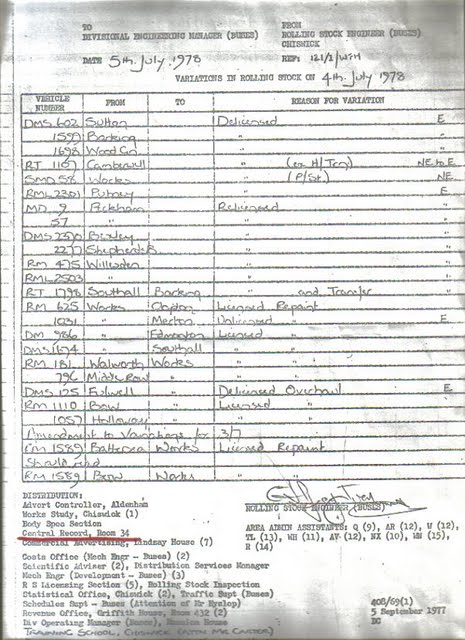 TO FROM
DIVISIONAL ENGINEERING MANAGER (BUSES) ROLLING STOCK ENGINEER (BUSES)
CHISWICK
DATE 5th July, 1978 REF: 121/1/WFH
VARIATIONS IN ROLLING STOCK ON 4th July, 1978
VEHICLE NUMBER FROM TO REASON FOR VARIATION
DMS 602 Sutton Delicensed E
1599 Barking " "
1698 Wood Gn " "
RT 1107 Camberwell " (ex H/Ten) NE to E
SMD 58 Works " (P/St) NE
RML 2301 Putney " E
MD 9 Peckham Relicensed
57 " "
DMS 2570 Bexley "
2277 Shepherds B "
RM 475 Willesden "
RML 2503 " "
RT 1798 Southall Barking " and Transfer
RM 625 Works Clapton Licensed Repaint
1031 " Merton Unlicensed " E
DM 986 " Edmonton Licensed "
DMS 1674 " Southall " "
RM 181 Walworth Works " "
796 Middle Row " " "
DMS 125 Fulwell " Delicensed Overhaul E
RM 1110 Bow " Licensed "
1057 Holloway " " "
Amendment to Variations for 3/7
RM 1589 Battersea Works Licensed Repaint
Should read
RM 1589 Bow Works " "
DISTRIBUTION:
Advert Controller, Aldenham
Works Study, Chiswick (1)
Body Spec Section
Central Record, Room 34
Commercial Advertising, Lindsay House (7)
Costs Office (Mech Engr - Buses) (2)
Scientific Adviser (2), Distribution Services Manager
Mech Engr (Development - Buses) (3)
R S Licensing Section (5), Rolling Stock Inspection
Statistical Office, Chiswick (2), Traffic Supt (Buses)
Schedules Supt - Buses (Attention of Mr Hyslop)
Revenue Office, Griffith House, Room 432 (2)
Div Operating Manager (Buses), House
TRAINING SCHOOL, CHISWICK (ATTN MR CARTER)
ROLLING STOCK ENGINEER (BUSES)
AREA ADMIN ASSISTANTS: Q (9), AR (12), W (12),
TL (13), WH (11), AV (12), NX (10), WN (15),
R (14)
408/69(1)
5 September 1977